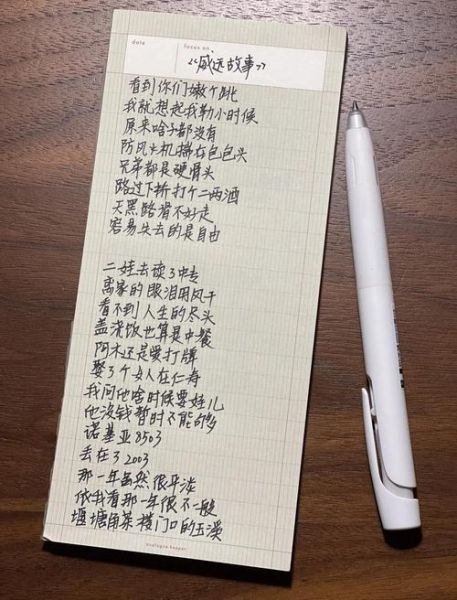 date
focus on
“威远故事”
看到你们嫩个跳
我就想起我勒小时候
原来啥子都没有
防风火机揣在包包头
兄弟都是硬骨头
路过下折打个二两酒
天黑路滑不好走
容易失去的是自由
二娃去读了中专
离家的眼泪用风干
看不到人生的尽头
盖浇饭也算是中餐
阿木还是爱打牌
娶了个女人在仁寿
我问他啥时候要娃儿
他说没钱暂时不能够
诺基亚8503
丢在了2003
那一年虽然很平淡
但我看那一年很不一般
堰塘角茶楼门口的玉溪
analogue keeper